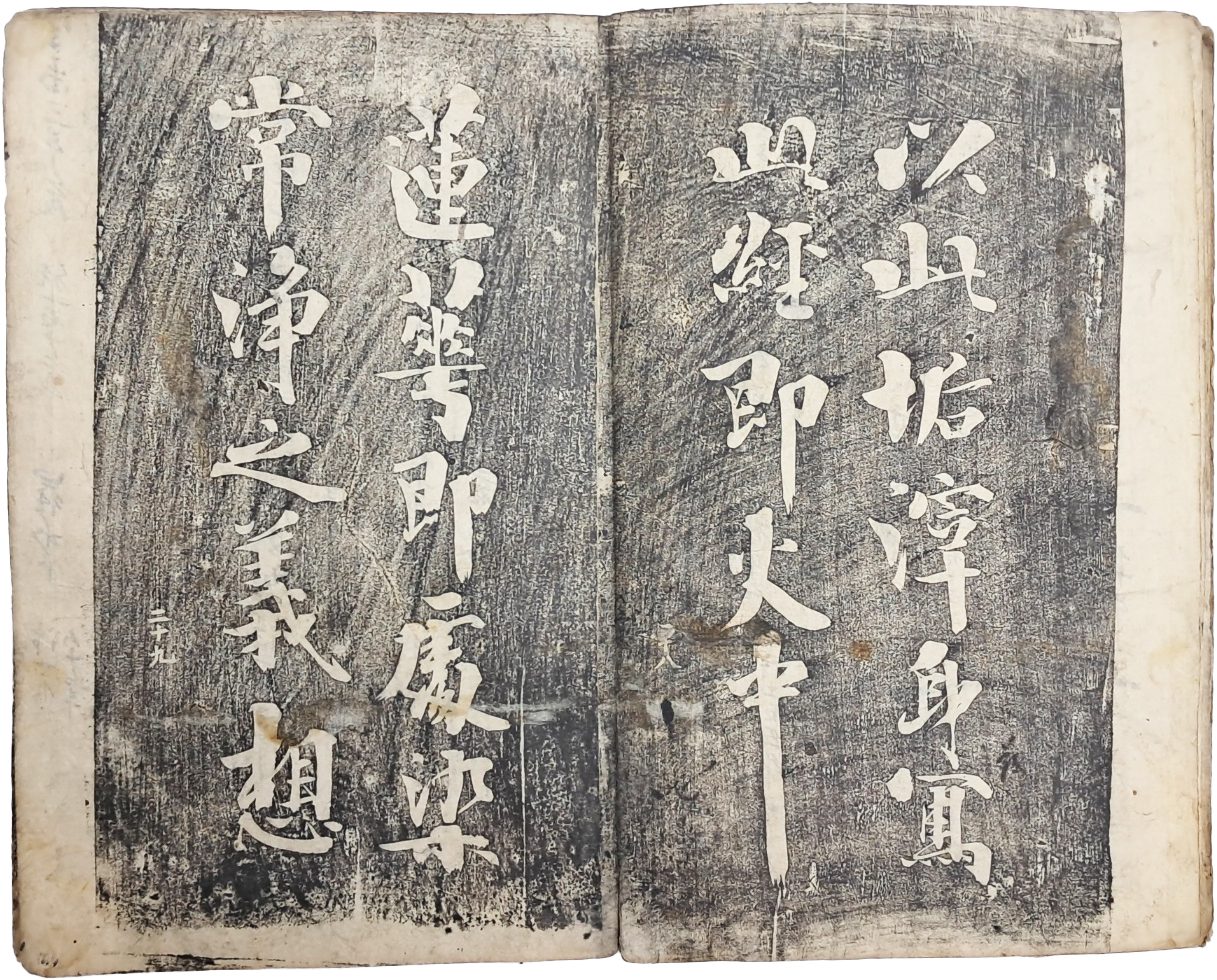 以此垢滓身寫
此經即火中
蓮華即處染
常淨之義想
二十九